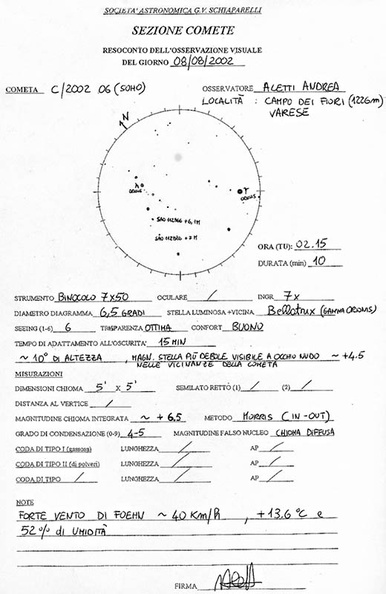 SOCIETA' ASTRONOMICA G.V. SCHIAPARELLI
SEZIONE COMETE
RESOCONTO DELL'OSSERVAZIONE VISUALE
DEL GIORNO 08/08/2002
COMETA C/2002 O6 (SOHO) OSSERVATORE ALETTI ANDREA
LOCALITÀ : CAMPO DEI FIORI (1226m)
VARESE
N
λ
ORIONIS
γ
ORIONIS
SAO 112966 +6,1M
ORA (TU): 02.15
DURATA (min) 10
STRUMENTO BINOCOLO 7x50 OCULARE / INGR 7x
DIAMETRO DIAGRAMMA 6,5 GRADI STELLA LUMINOSA +VICINA Bellatrix (GAMMA ORIONIS)
SEEING (1-6) 6 TRASPARENZA OTTIMA CONFORT BUONO
TEMPO DI ADATTAMENTO ALL'OSCURITA' 15 MIN
~ 10° DI ALTEZZA, MAGN. STELLA PIÙ DEBOLE VISIBILE A OCCHIO NUDO ~ +4.5
NELLE VICINANZE DELLA COMETA
MISURAZIONI
DIMENSIONI CHIOMA 5' X 5' SEMILATO RETTO (1) / (2) /
DISTANZA AL VERTICE /
MAGNITUDINE CHIOMA INTEGRATA ~ + 6.5 METODO MORRIS (IN-OUT)
GRADO DI CONDENSAZIONE (0-9) 4-5 MAGNITUDINE FALSO NUCLEO CHIOMA DIFFUSA
CODA DI TIPO I (gassosa) LUNGHEZZA / AP /
CODA DI TIPO II (di polveri) LUNGHEZZA / AP /
CODA DI TIPO / LUNGHEZZA / AP /
NOTE
FORTE VENTO DI FOEHN ~ 40 Km/h, +13.6 °C e
52% di UMIDITÀ
FIRMA